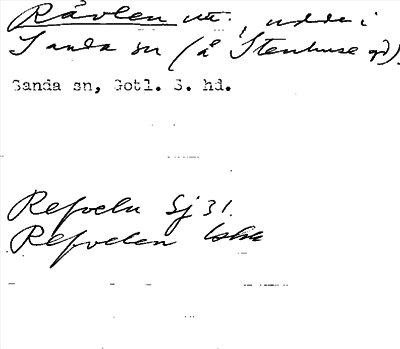 Rävlen m., udde i
Sanda sn (å Stenhuse gd).
Sanda sn, Gotl. S. hd.
Refveln Sj 31.
Refvelen